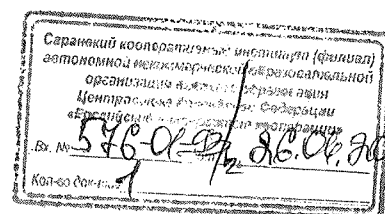 Саранский кооперативный институт (филиал)
автономной некоммерческой образовательной
организации высшего образования
Центросоюза Российской Федерации
«Российский университет кооперации»
Вх. № 576-01- 26.06.20
Кол-во док-тов 1